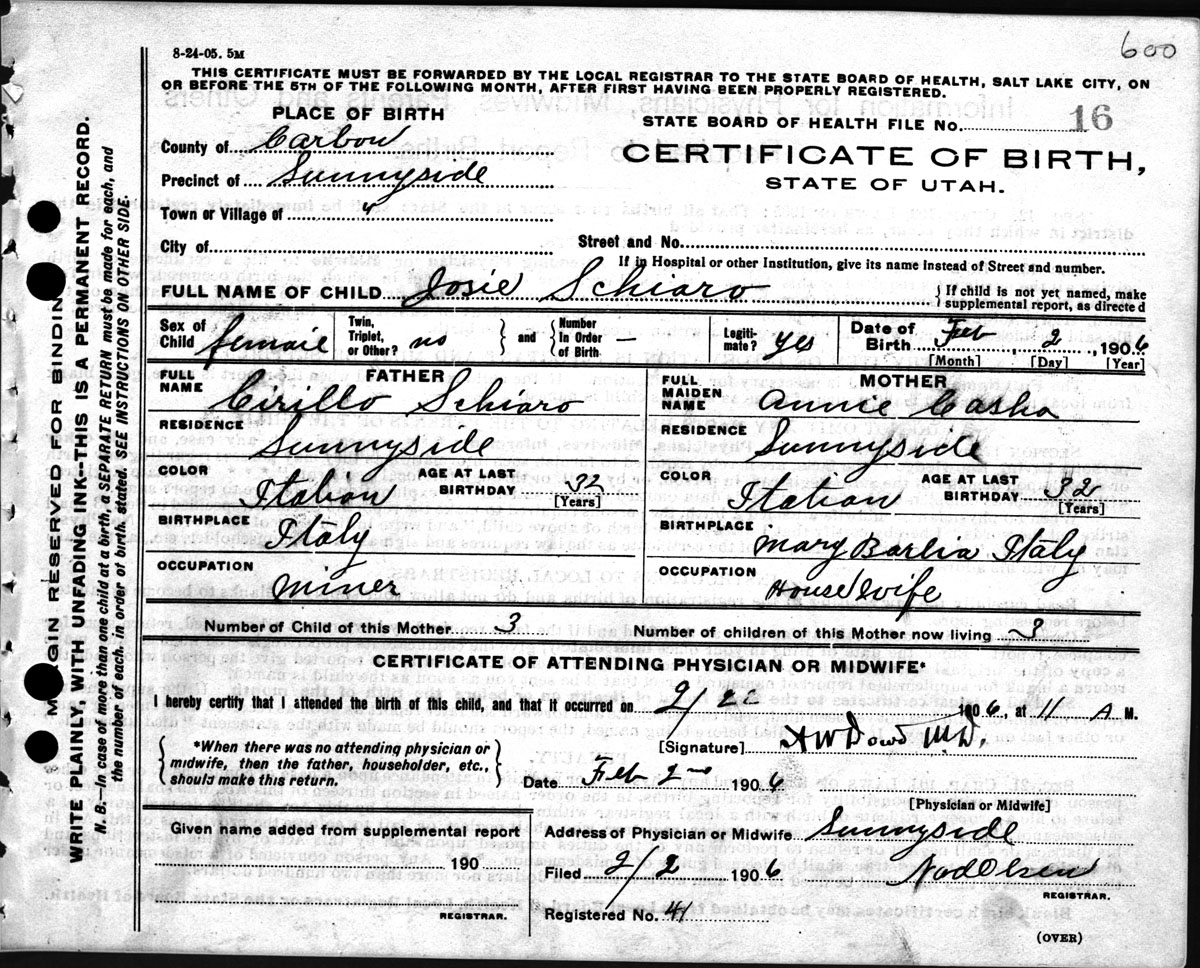 600
8-24-05. 5M
THIS CERTIFICATE MUST BE FORWARDED BY THE LOCAL REGISTRAR TO THE STATE BOARD OF HEALTH, SALT LAKE CITY, ON
OR BEFORE THE 5TH OF THE FOLLOWING MONTH, AFTER FIRST HAVING BEEN PROPERLY REGISTERED.
PLACE OF BIRTH
STATE BOARD OF HEALTH FILE No. 16
County of Carbon
CERTIFICATE OF BIRTH,
Precinct of Sunnyside
STATE OF UTAH.
Town or Village of "
City of
Street and No.
If in Hospital or other Institution, give its name instead of Street and number.
FULL NAME OF CHILD Josie Schiaro
{If child is not yet named, make
supplemental report, as directed
Sex of Child female
Twin, Triplet, or Other? no
and
Number In Order of Birth —
Legiti- mate? yes
Date of Birth Feb, 2, 1906
[Month] [Day] [Year]
FATHER
MOTHER
FULL NAME Cirillo Schiaro
FULL MAIDEN NAME Annie Casha
RESIDENCE Sunnyside
RESIDENCE Sunnyside
COLOR Italian
AGE AT LAST BIRTHDAY 32 [Years]
COLOR Italian
AGE AT LAST BIRTHDAY 32 [Years]
BIRTHPLACE Italy
BIRTHPLACE Mary Barlia Italy
OCCUPATION Miner
OCCUPATION Housewife
Number of Child of this Mother 3
Number of children of this Mother now living 3
CERTIFICATE OF ATTENDING PHYSICIAN OR MIDWIFE*
I hereby certify that I attended the birth of this child, and that it occurred on 2/2 1906, at 11 A M.
*When there was no attending physician or
midwife, then the father, householder, etc.,
should make this return.
[Signature] M.D.
Date Feb 2nd 1906
[Physician or Midwife]
Given name added from supplemental report
190
REGISTRAR.
Address of Physician or Midwife Sunnyside
Filed 2/2 1906
REGISTRAR.
Registered No. 41
(OVER)
MARGIN RESERVED FOR BINDING
WRITE PLAINLY, WITH UNFADING INK--THIS IS A PERMANENT RECORD.
N. B.—In case of more than one child at a birth, a SEPARATE RETURN must be made for each, and
the number of each, in order of birth, stated. SEE INSTRUCTIONS ON OTHER SIDE.